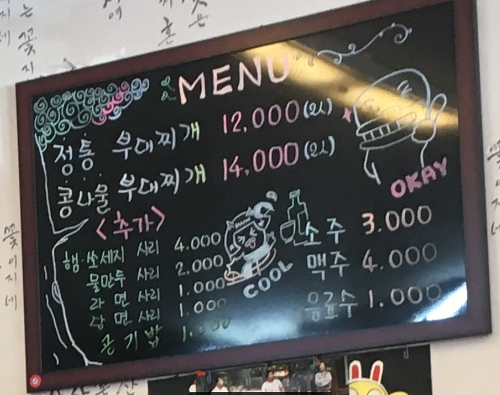 MENU
정통 부대찌개 12,000 (2人)
콩나물 부대찌개 14,000 (2人)
<추가>
햄·쏘세지 사리 4.000
물만두 사리 2.000
라면 사리 1.000
당면 사리 1.000
공기밥 1.000
OKAY
COOL
소주 3.000
맥주 4.000
음료수 1.000